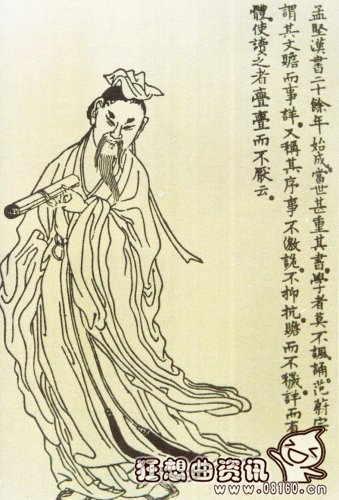 孟堅漢書二十餘年始成。當世甚重其書。學者莫不諷誦。范蔚
謂其文贍而事詳。又稱其序事不激詭。不抑抗。贍而不穢。詳而有
體。使讀之者亹亹而不厭云。
狂想曲资讯
www.08160.cn